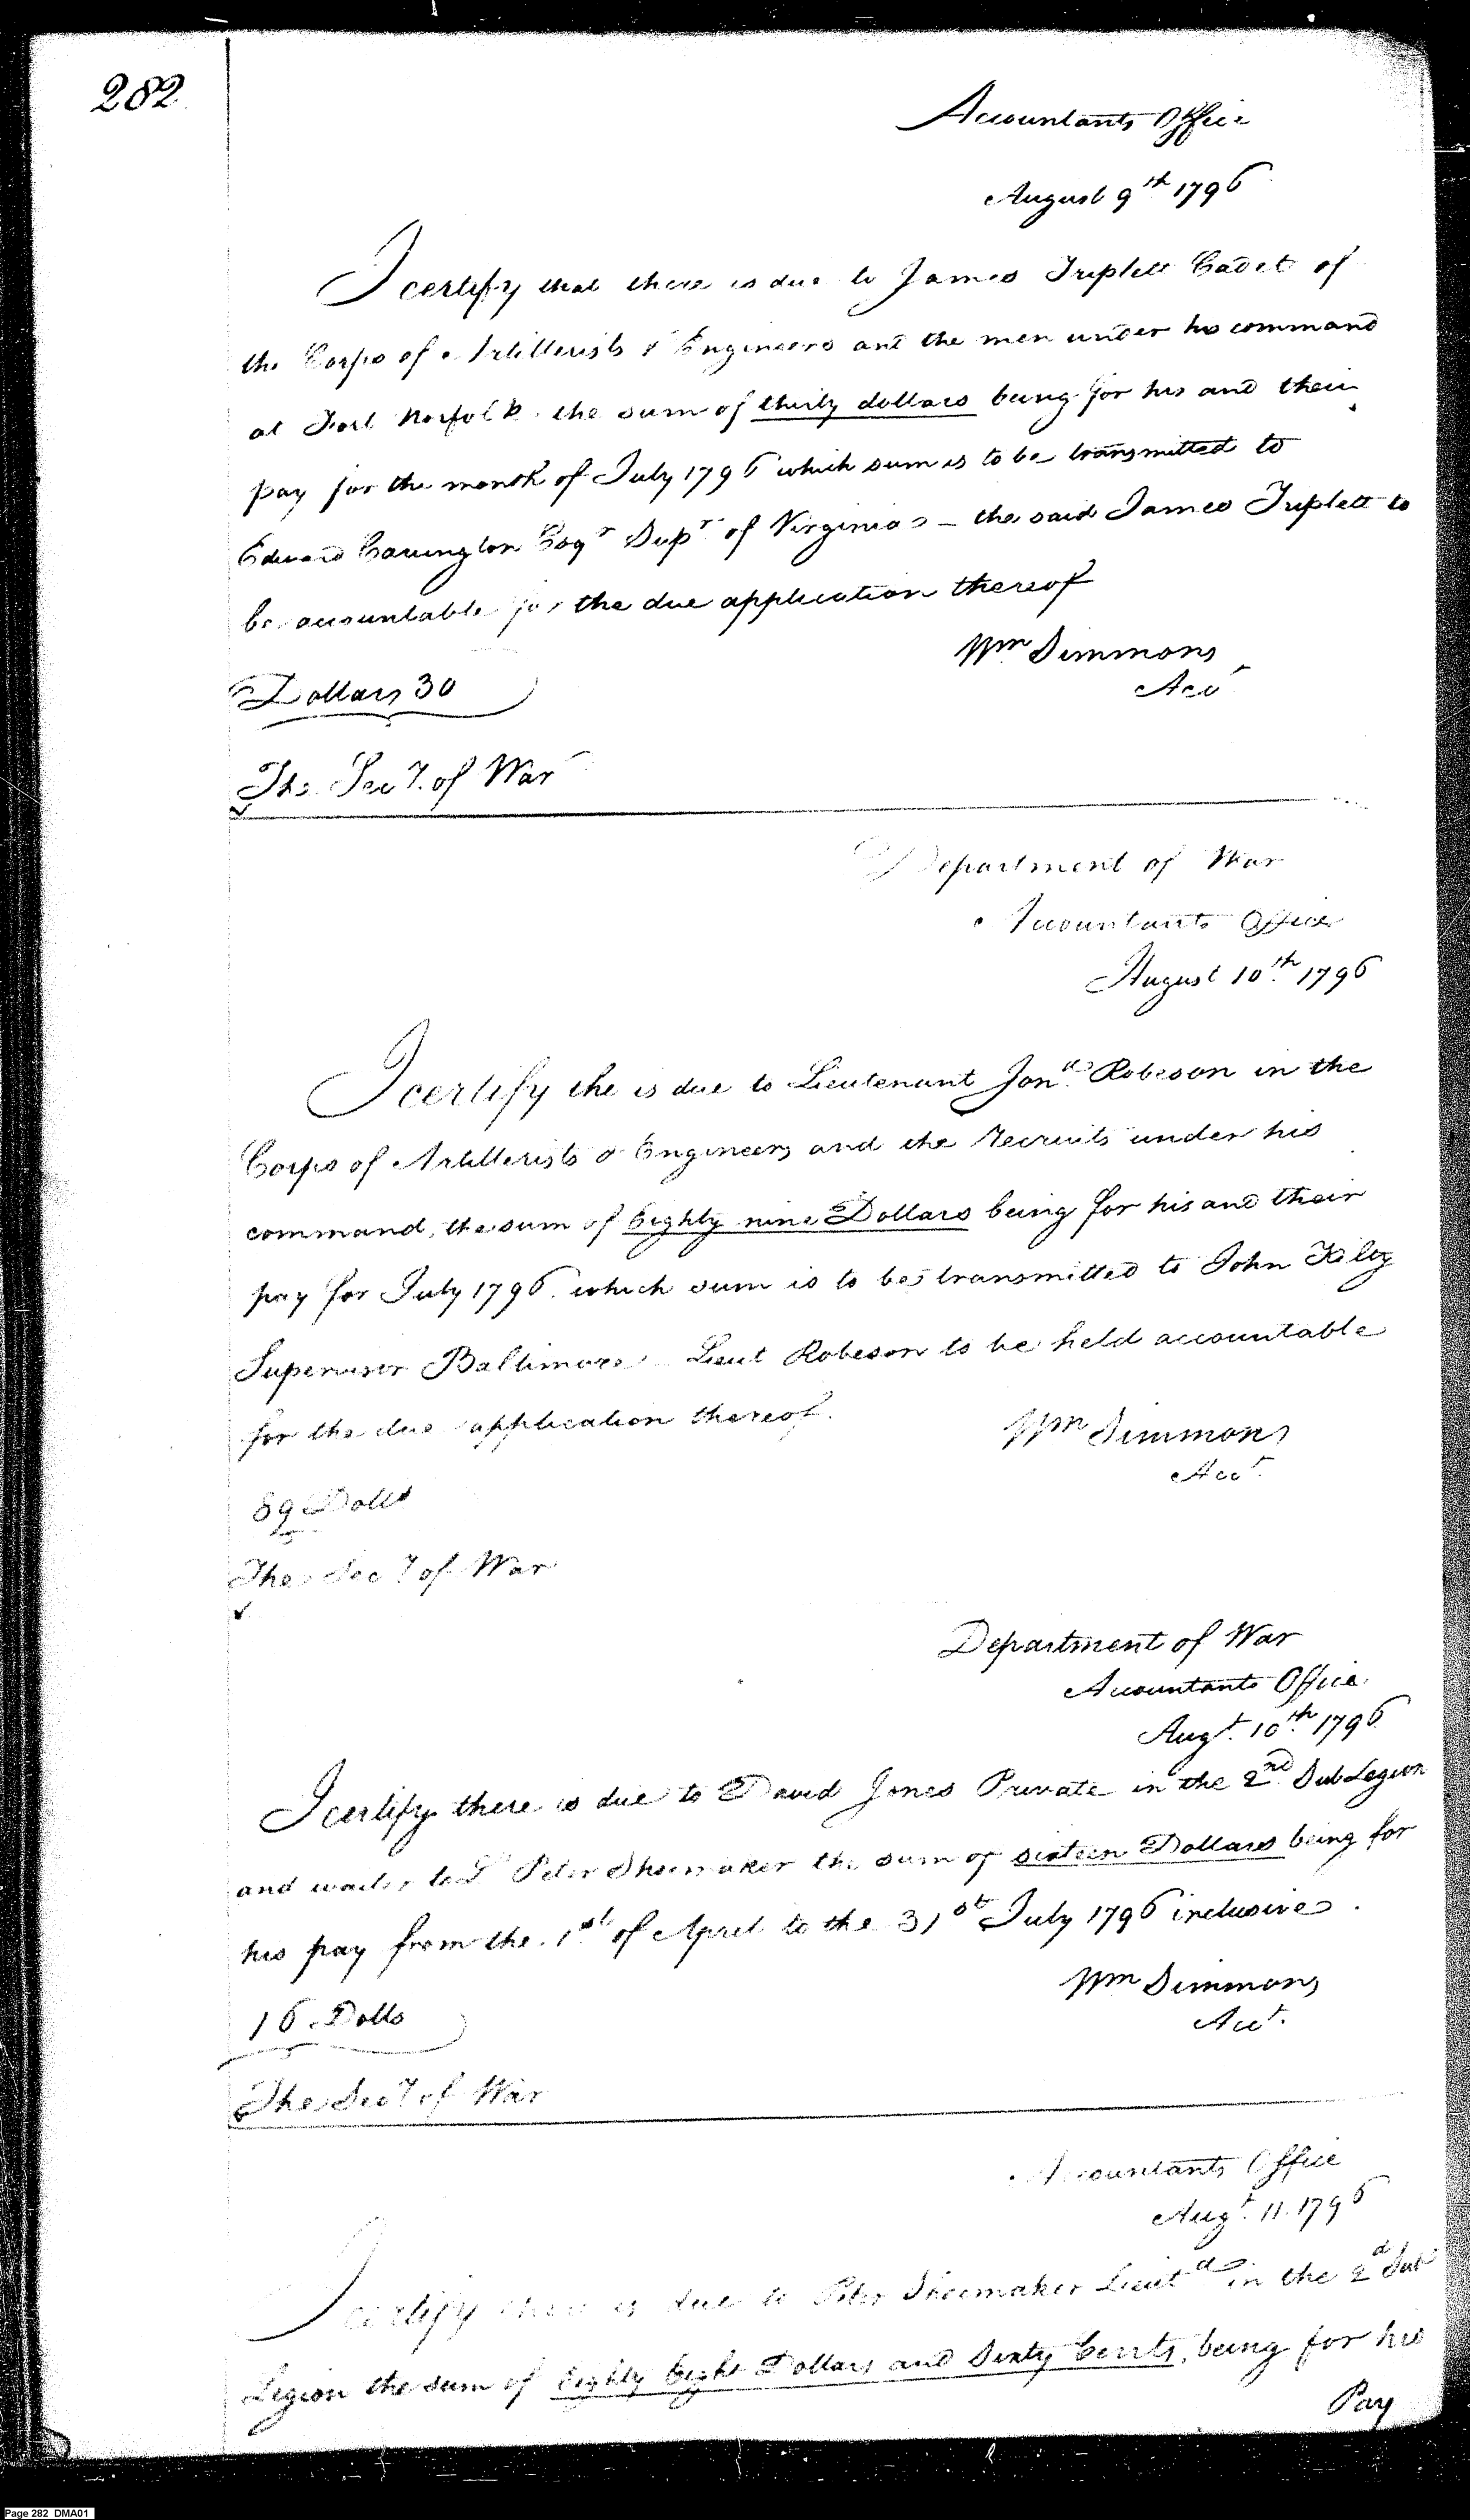 282
Accountants Office
August 9th 1796
I certify that there is due to James Triplett Cadet of
the Corps of Artillerists & Engineers and the men under his command
at Fort Norfolk the sum of thirty dollars being for his and their
pay for the month of July 1796 which sum is to be transmitted to
Edward Carrington Esqr Supr of Virginia - the said James Triplett to
be accountable for the due application thereof
Wm Simmons
Acct
Dollars 30
The Secy. of War
Department of War
Accountants Office
August 10th 1796
I certify the is due to Lieutenant Jona. Robeson in the
Corps of Artillerists & Engineers and the Recruits under his
command, the sum of Eighty nine Dollars being for his and their
pay for July 1796. which sum is to be transmitted to John Kilty
Supervisor Baltimore Lieut Robeson to be held accountable
for the due application thereof.
Wm Simmons
Acct.
89 Dolls
The Secy of War
Department of War
Accountants Office
Augt. 10th. 1796
I certify there is due to David Jones Private in the 2nd SubLegion
and waiter to Lt Peter Shoemaker the sum of sixteen Dollars being for
his pay from the 1st of April to the 31st July 1796 inclusive.
Wm Simmons
Acct.
16. Dolls
The Secy of War
Accountants Office
Augt. 11. 1796
I certify there is due to Peter Shoemaker Lieut in the 2d Sub
Legion the sum of Eighty Eight Dollars and Sixty Cents, being for his
Pay
Page 282 DMA01